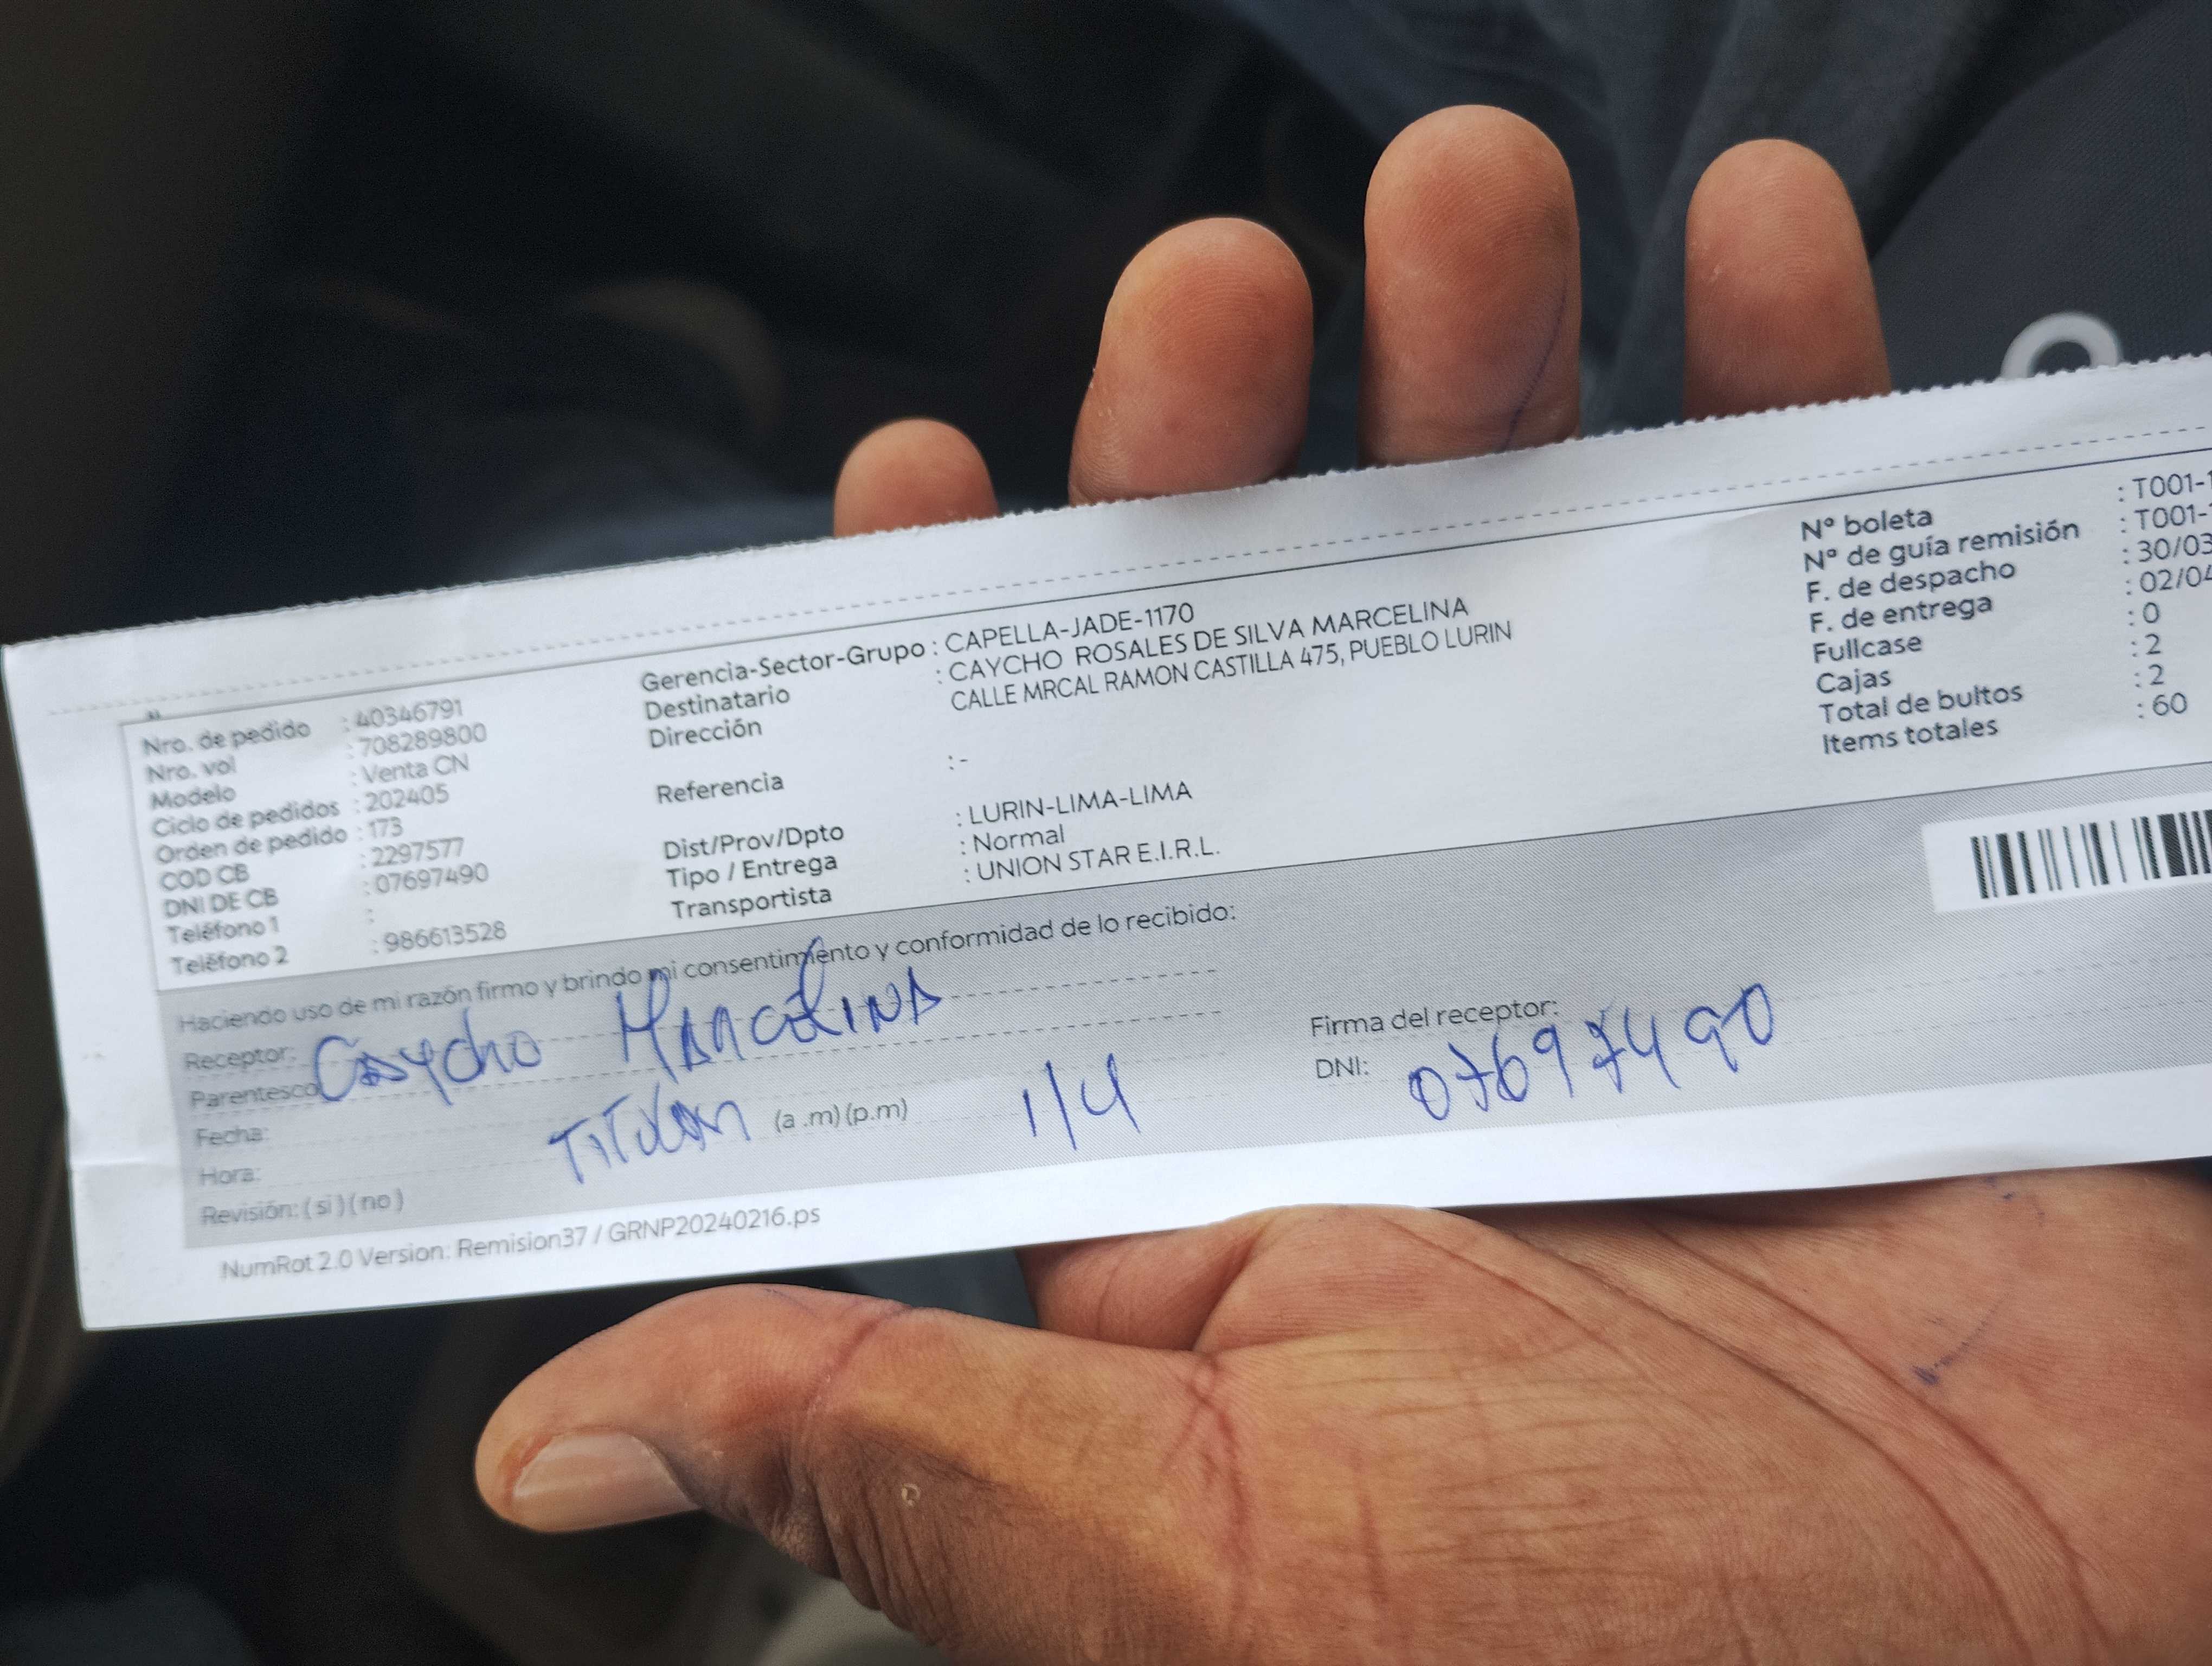 Nro. de pedido : 40346791
Nro. vol : 708289800
Modelo : Venta CN
Ciclo de pedidos : 202405
Orden de pedido : 173
COD CB : 2297577
DNI DE CB : 07697490
Teléfono 1 :
Teléfono 2 : 986613528
Gerencia-Sector-Grupo : CAPELLA-JADE-1170
Destinatario : CAYCHO ROSALES DE SILVA MARCELINA
Dirección CALLE MRCAL RAMON CASTILLA 475, PUEBLO LURIN
Referencia : -
Dist/Prov/Dpto : LURIN-LIMA-LIMA
Tipo / Entrega : Normal
Transportista : UNION STAR E.I.R.L.
Nº boleta : T001-1
Nº de guía remisión : T001-1
F. de despacho : 30/03
F. de entrega : 02/04
Fullcase : 0
Cajas : 2
Total de bultos : 2
Items totales : 60
Haciendo uso de mi razón firmo y brindo mi consentimiento y conformidad de lo recibido:
Receptor: Caycho Marcelina
Parentesco:
Fecha: Titular (a .m) (p.m) 1/4
Hora:
Revisión: ( si ) ( no )
Firma del receptor:
DNI: 07697490
NumRot 2.0 Version: Remision37 / GRNP20240216.ps